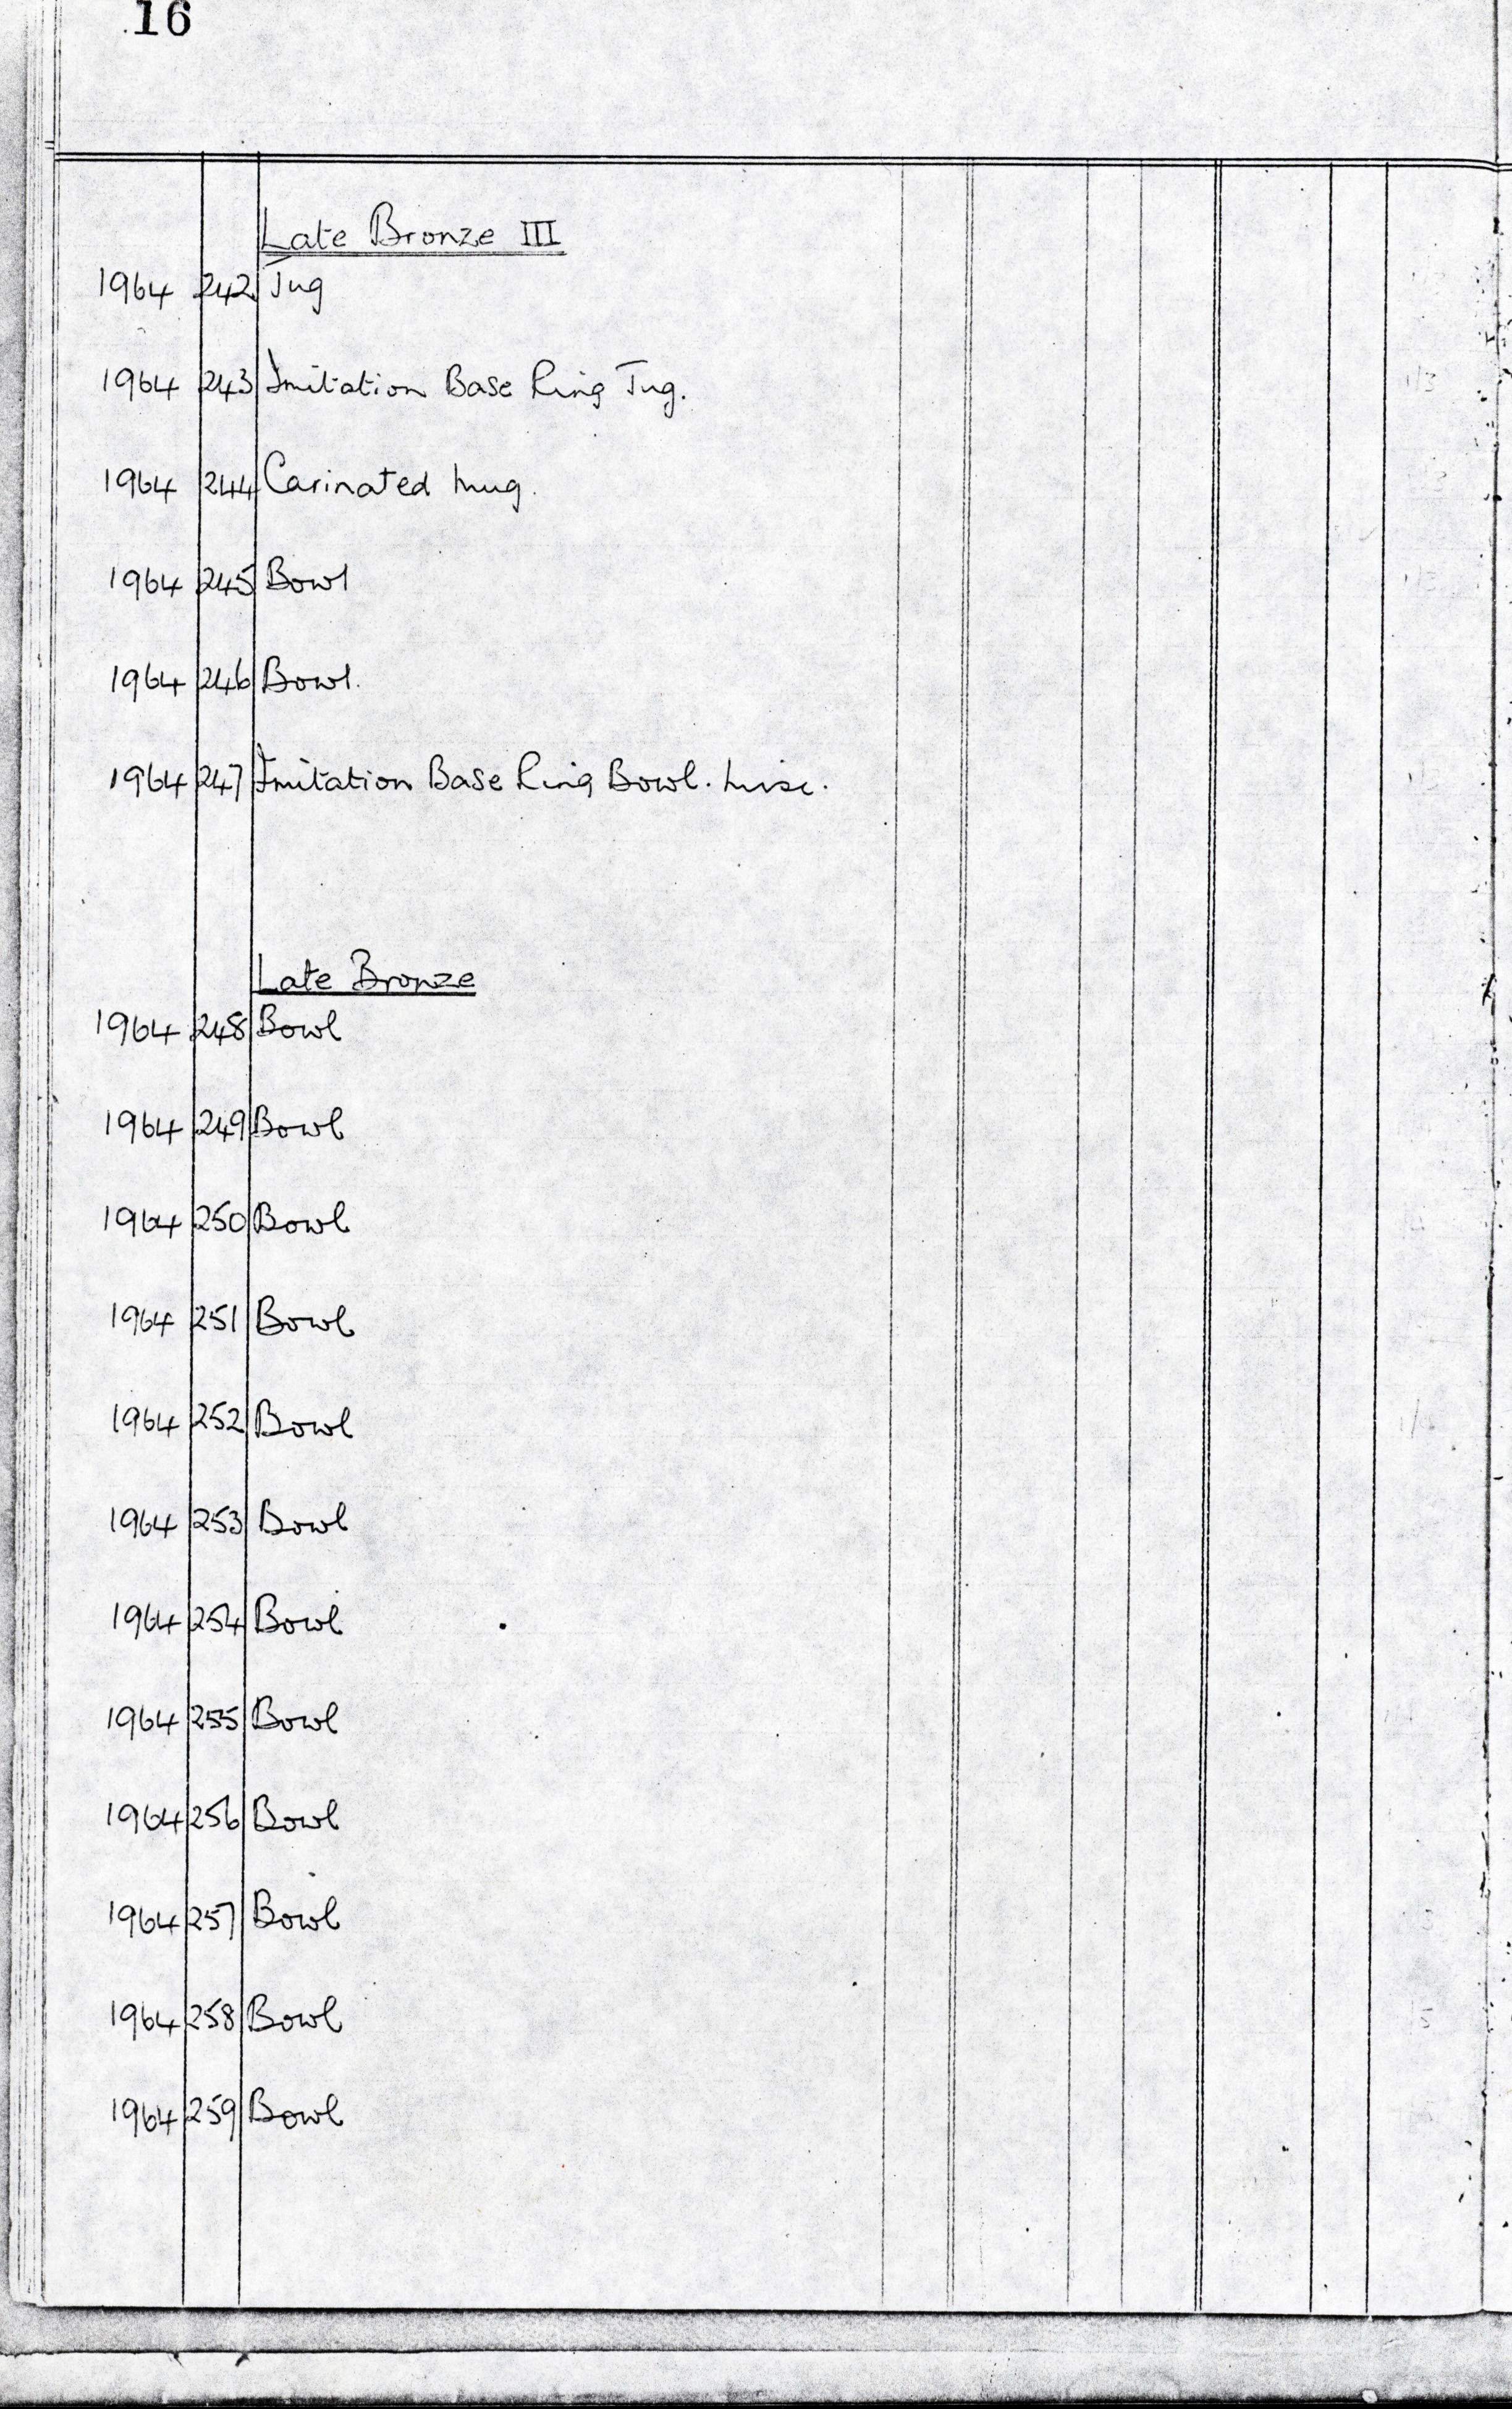 16
Late Bronze III
1964 242 Jug
1964 243 Imitation Base Ring Jug.
1964 244 Carinated Mug.
1964 245 Bowl
1964 246 Bowl.
1964 247 Imitation Base Ring Bowl. Misc.
Late Bronze
1964 248 Bowl
1964 249 Bowl
1964 250 Bowl
1964 251 Bowl
1964 252 Bowl
1964 253 Bowl
1964 254 Bowl
1964 255 Bowl
1964 256 Bowl
1964 257 Bowl
1964 258 Bowl
1964 259 Bowl